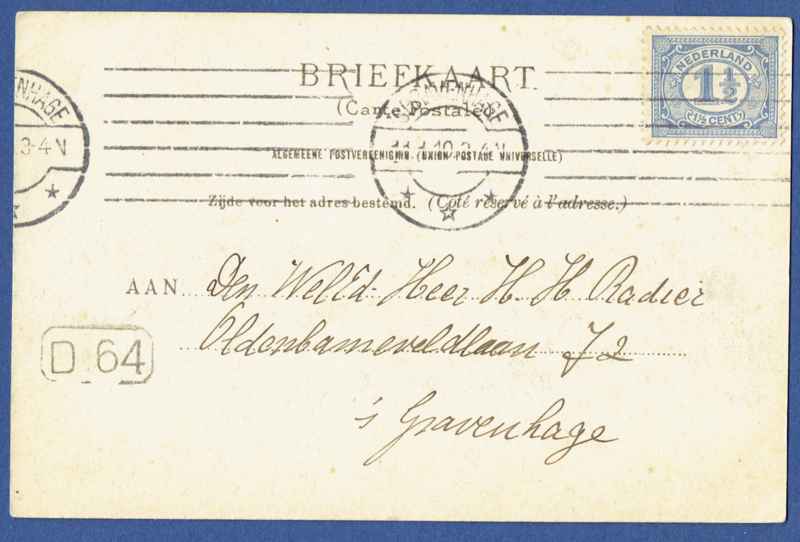 BRIEFKAART.
(Carte Postale)
ALGEMEENE POSTVEREENIGING. (UNION POSTALE UNIVERSELLE)
Zijde voor het adres bestemd. (Côté réservé à l'adresse.)
NEDERLAND
1½
1½ CENT
ENHAGE
3-4 N
GRAVENHAGE
11.1.10 3-4 N
AAN Den WelEd. Heer H. H. Radier
Oldenbarneveldlaan 72
D 64
's Gravenhage